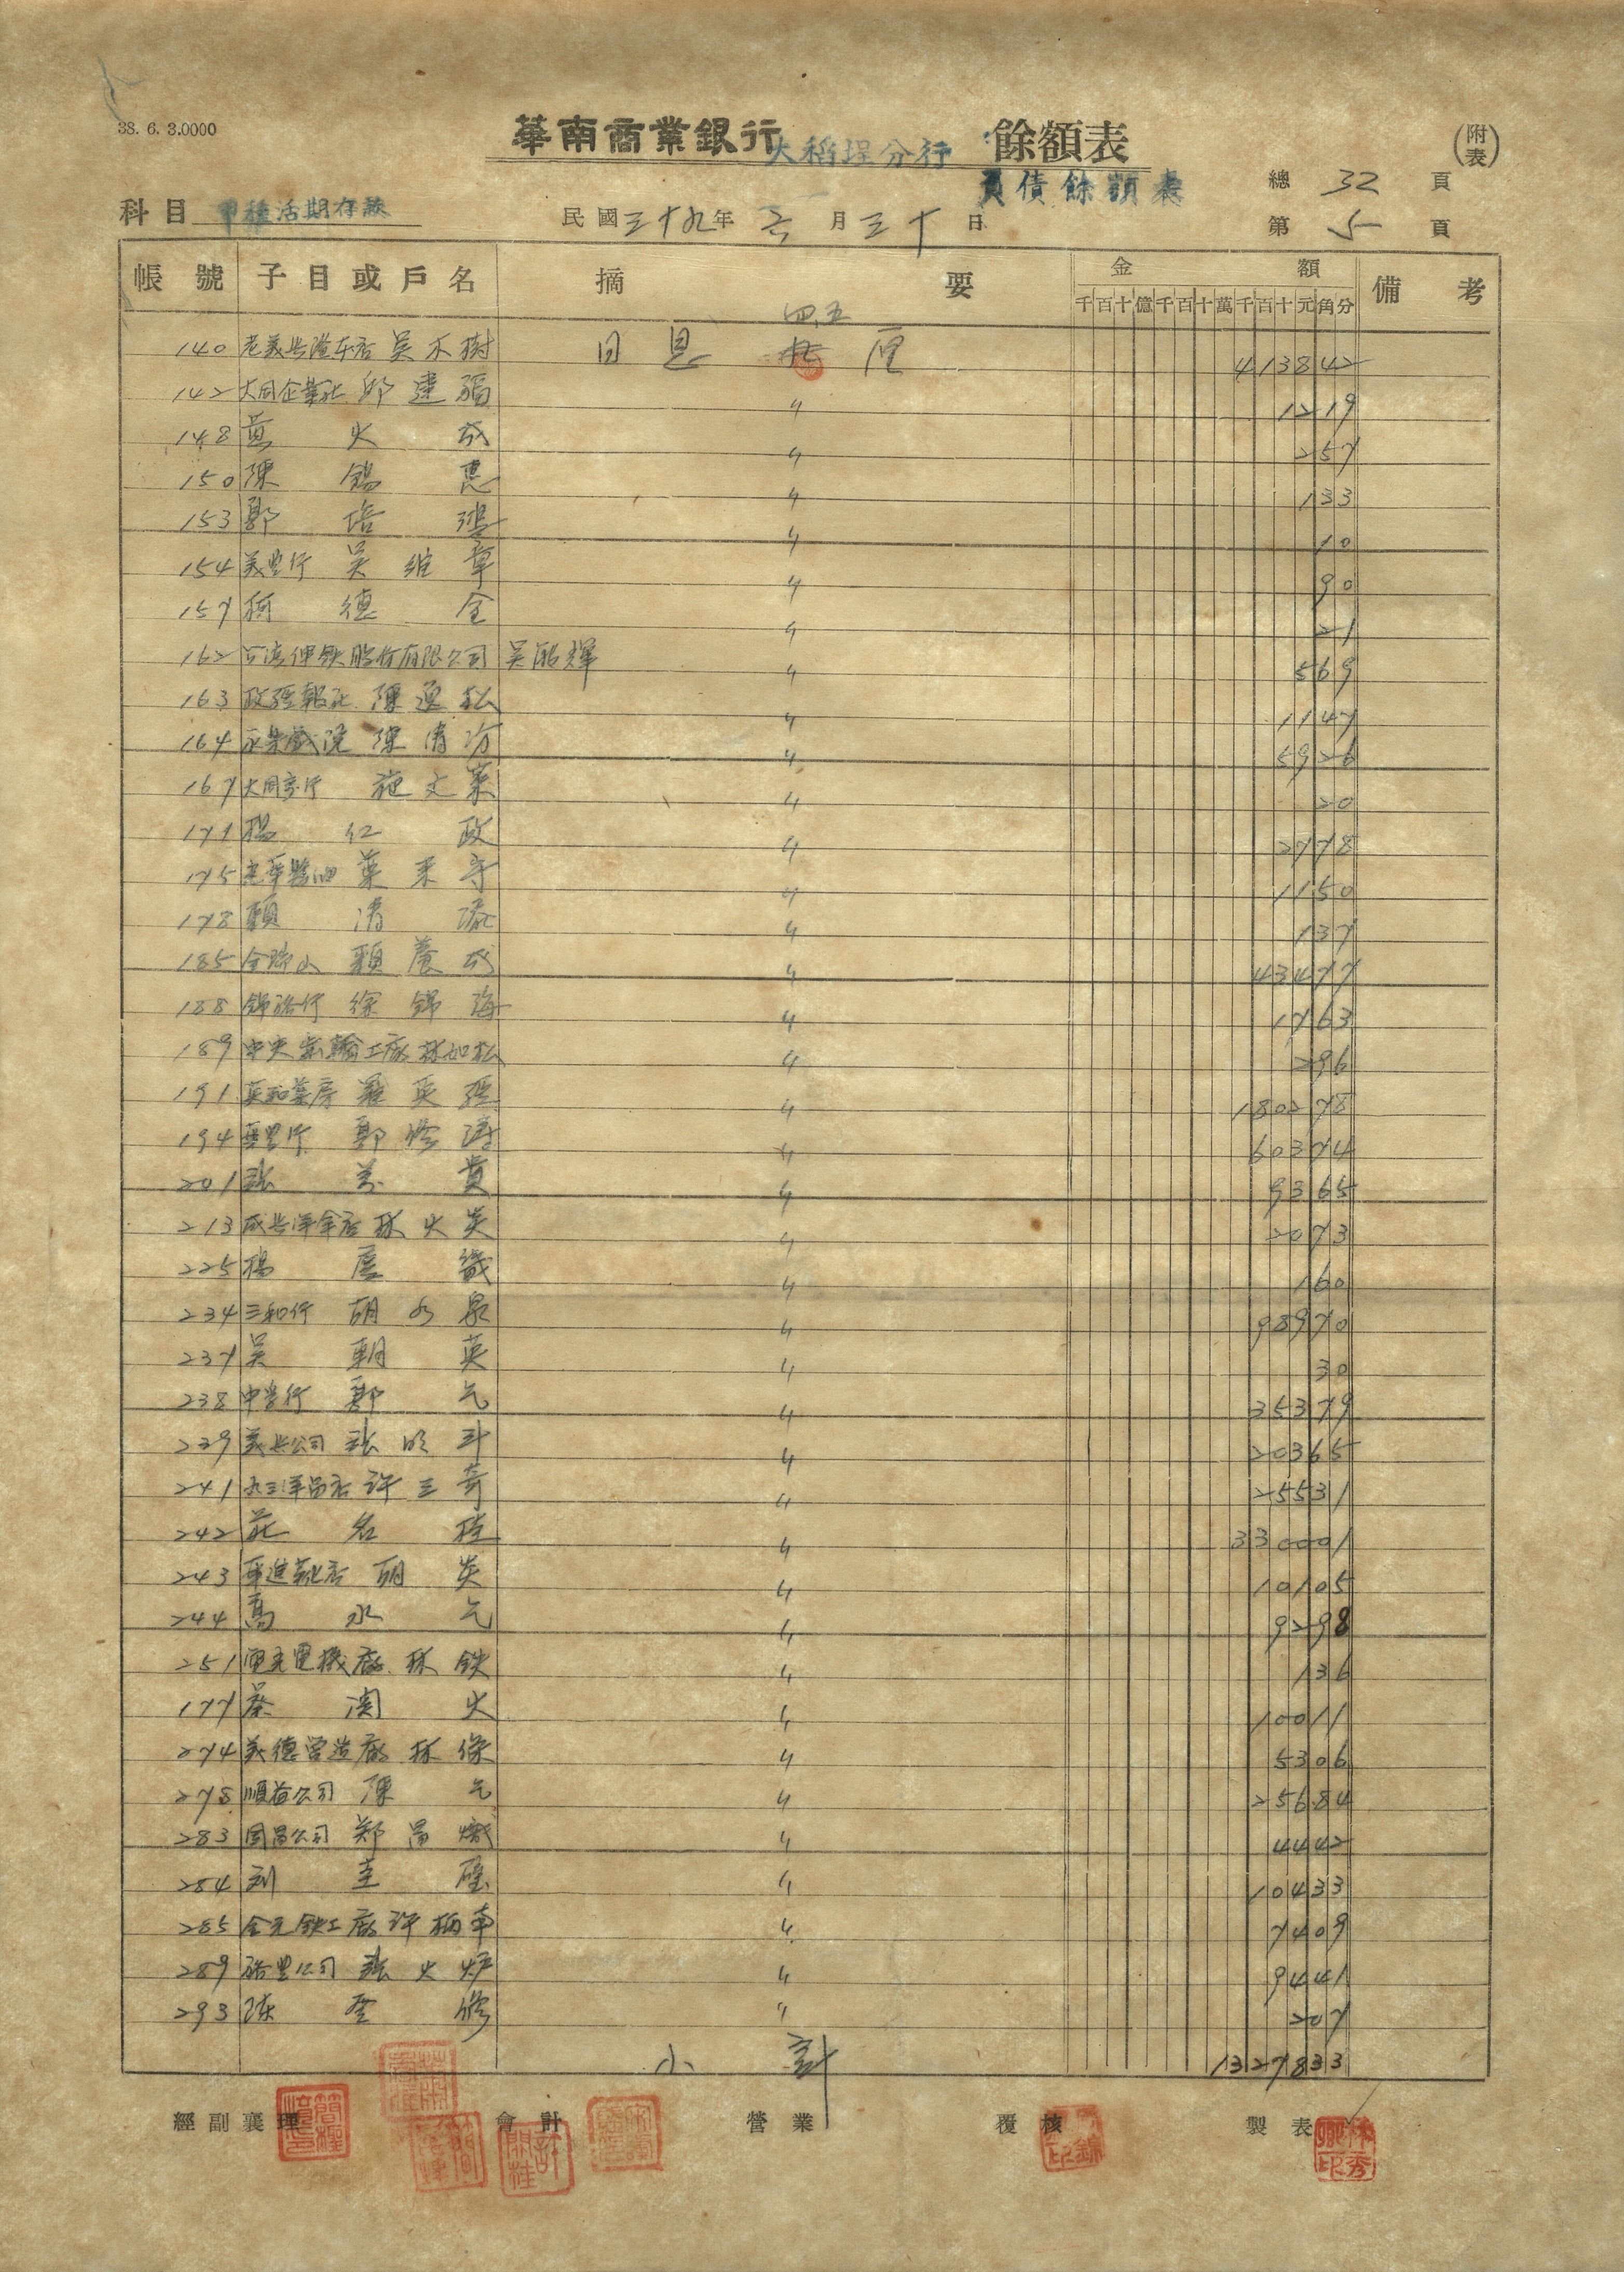 38. 6. 3.0000
華南商業銀行 大稻埕分行 餘額表
(附表)
負債餘額表
總 32 頁
科目 甲種活期存款
民國三十九年 六 月 三十 日
第 5 頁
帳號 子目或戶名 摘要 金額 備考
千百十億千百十萬千百十元角分
四五
140 吳木樹 日息 厘 413842
142 大同企業社 邱建福 〃 1219
148 黃火成 〃 257
150 陳錫惠 〃 133
153 鄭培鴻 〃 10
154 義豐行 吳維章 〃 90
157 柯德全 〃 21
162 台湾伸铁股份有限公司 吳 輝 〃 569
163 政經報社 陳逸松 〃 1147
164 永樂戲院 陳清汾 〃 5926
167 大同商行 施文 〃 20
171 楊仁政 〃 2778
175 葉来守 〃 1150
178 賴清添 〃 137
185 金瑞山 顏養成 〃 43477
188 錦裕行 徐錦海 〃 1763
189 中央 工廠 林如松 〃 296
191 英和藥房 羅英 〃 180278
194 華豐行 鄭 〃 60374
201 張萬貴 〃 9365
213 成興洋傘店 林火炎 〃 2073
225 楊 〃 160
234 三和行 胡水泉 〃 98970
237 吳朝英 〃 30
238 鄭乞 〃 35379
239 義興公司 張 斗 〃 20365
241 許三奇 〃 25531
242 莊名桂 〃 330001
243 華進靴店 胡炎 〃 10105
244 高水乞 〃 9298
251 電機廠 林鉄 〃 136
177 蔡 火 〃 10011
274 義德營造廠 林保 〃 5306
278 順益公司 陳乞 〃 25684
283 國昌公司 郑昌熾 〃 4442
284 刘圭壁 〃 10433
285 金元鉄工廠 許楠 〃 7409
289 裕豐公司 張火炉 〃 9441
293 陈 修 〃 207
小計 1327833
經副襄理 會計 營業 覆核 製表